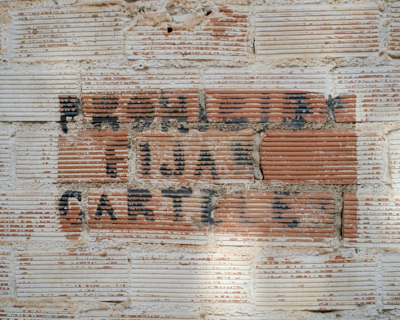 PROHIBIDO
FIJAR
CARTELES